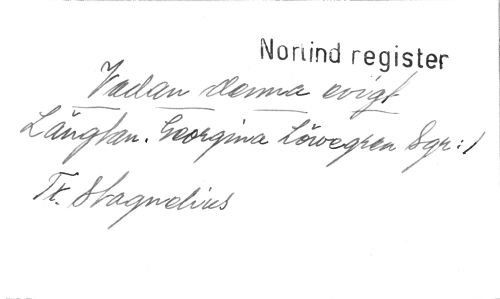 Norlind register
Vadan denna evigt
Längtan. Georgina Löwegren Sgr:/
Tx. Stagnelius